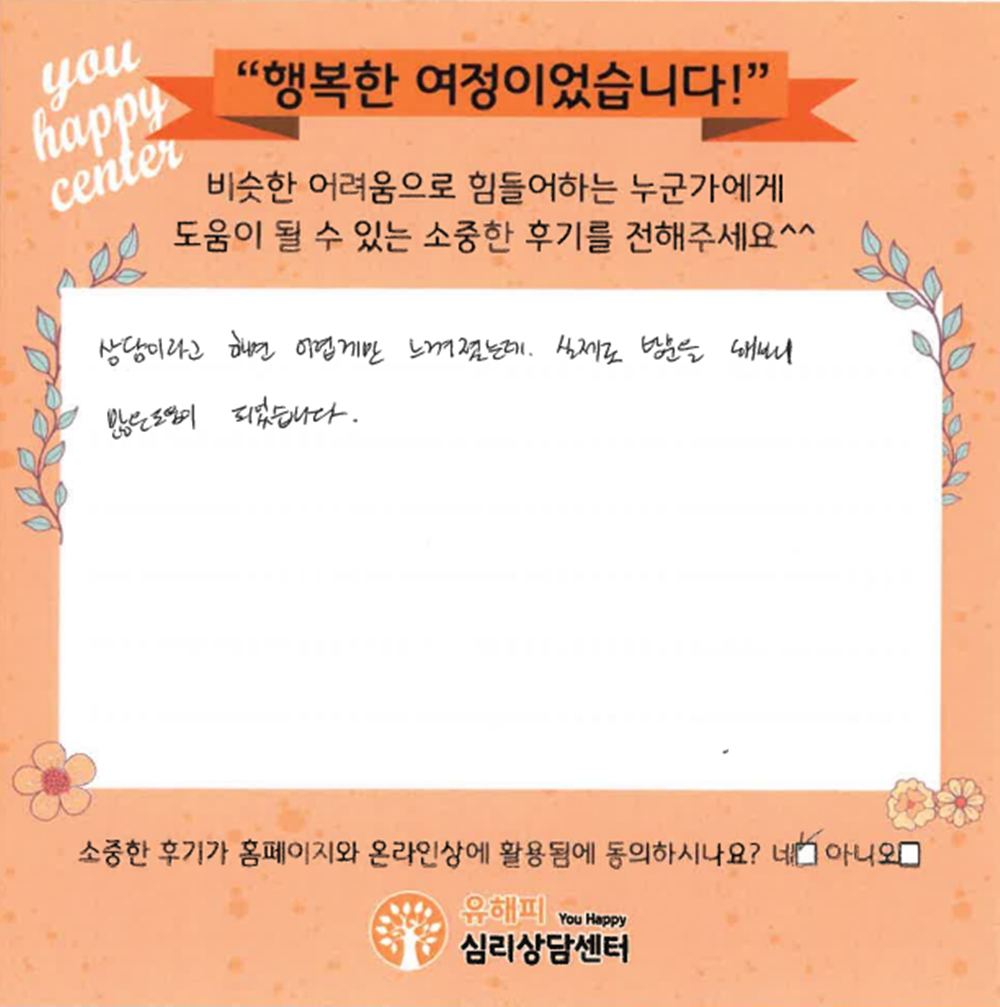 you
happy
center
“행복한 여정이었습니다!”
비슷한 어려움으로 힘들어하는 누군가에게
도움이 될 수 있는 소중한 후기를 전해주세요^^
상담이라고 하면 어렵게만 느껴졌는데. 실제로 방문을 해보니
많은도움이 되었습니다.
소중한 후기가 홈페이지와 온라인상에 활용됨에 동의하시나요? 네 아니오
유해피 You Happy
심리상담센터